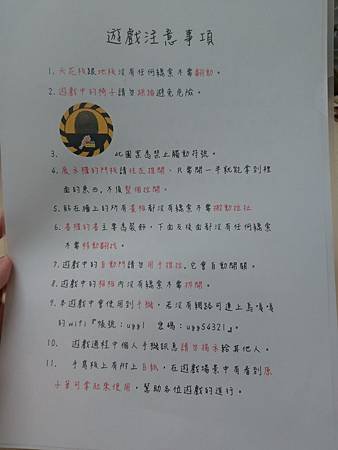 遊戲注意事項
1. 天花板跟地板沒有任何線索不要翻動。
2. 遊戲中的椅子請勿踩踏避免危險。
3. 此圖案為禁止觸動符號。
4. 展示櫃的門板請往左推開，只要開一半就能拿到裡
面的東西，不後整個推開。
5. 貼在牆上的所有畫框都沒有線索不要搬動拉扯
6. 書櫃的書主要為裝飾，下面及後面都沒有任何線索
不要移動翻找。
7. 遊戲中的自動門請勿用手推拉，它會自動開關。
8. 遊戲內的箱箱內沒有線索不要拆開。
9. 本遊戲中會使用到手機，若沒有網路可連上烏嘎嘎
的wifi『帳號：ugg1 密碼：ugg54321』。
10. 遊戲過程中個人手機訊息請勿揭示給其他人。
11. 手寫板上有附上白紙，在遊戲場景中有看到原
子筆可拿起來使用，幫助各位遊戲的進行。